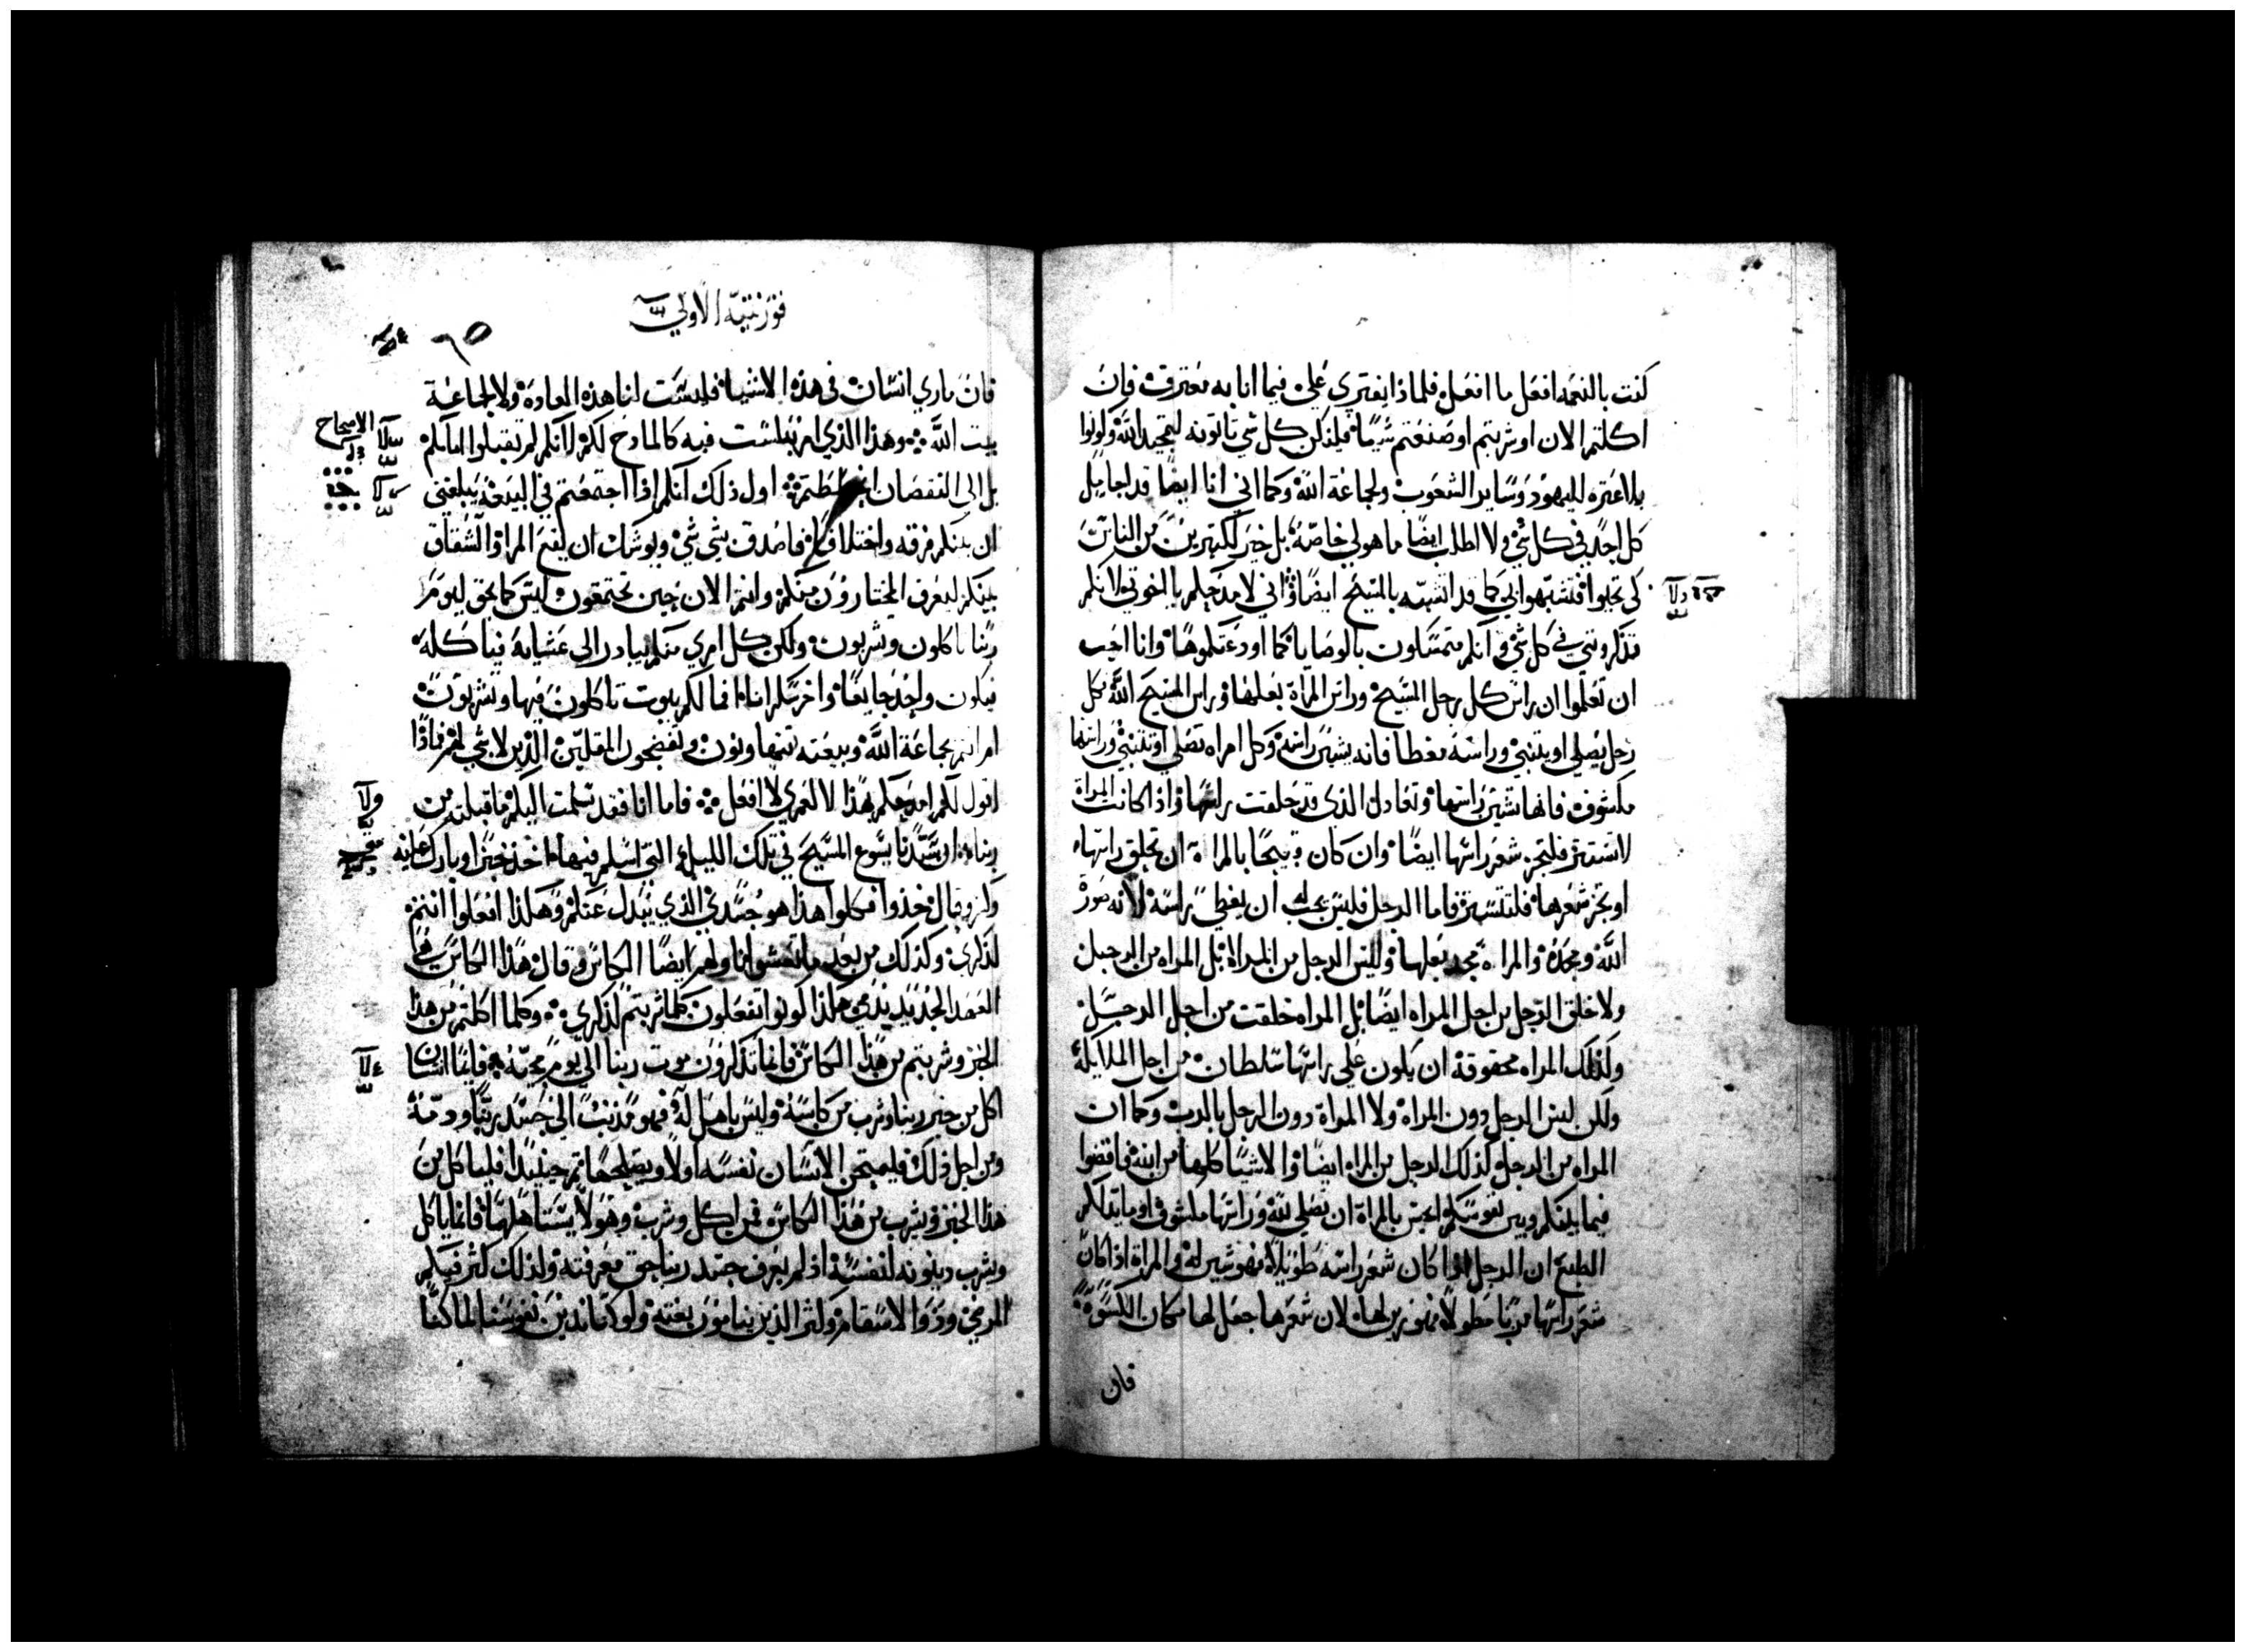 كنت بالنعمه افعل ما افعل فلماذا يفتري علي فيما انا به معترف فان
اكلتم الان او شربتم او صنعتم شيا فليكن كل شي تاتونه لتمجيد الله وكونوا
بلا عثره لليهود وساير الشعوب ولجماعة الله وكما اني انا ايضا قد اجامل
كل احد في كل شي ولا اطلب ايضا ما هو لي خاصة بل خير لكثيرين من الناس
كي تحيوا فتشبهوا بي كما قد اتشبه بالمسيح ايضا واني لامدحكم يا اخوتي لانكم
تذكرونني في كل شي وانكم متمسكون بالوصايا كما اودعتكموها وانا احب
ان تعلموا ان راس كل رجل المسيح وراس المراة بعلها وراس المسيح الله وكل
رجل يصلي او يتنبي وراسه مغطا فانه يشين راسه وكل امراه تصلي او تتنبي وراسها
مكشوف فانها تشين راسها وتعادل الذي قد حلقت راسها واذا كانت المراة
لا تستتر فلتجز شعر راسها ايضا وان كان قبيحا بالمراة ان تحلق راسها
او تجز شعرها فلتستتر فاما الرجل فليس يجب له ان يغطي راسه لانه صورة
الله ومجده والمراة مجد بعلها وليس الرجل من المراة بل المراه من الرجل
ولا خلق الرجل من اجل المراه ايضا بل المراه خلقت من اجل الرجل
ولذلك المراه محقوقة ان يكون علي راسها سلطان من اجل الملايكة
ولكن ليس الرجل دون المراه ولا المراة دون الرجل بالرب وكما ان
المراه من الرجل كذلك الرجل من المراه ايضا والاشيا كلها من الله فاقضوا
فيما بينكم وبين نفوسكم ايجسن بالمراة ان تصلي لله وراسها مكشوف اوما يدلكم
الطبع ان الرجل اذا كان شعر راسه طويلا فهو شين له والمراة اذا كان
شعر راسها مربا مطولا فهو زين لها لان شعرها جعل لها مكان الكسوة
فان
قورنتيه الاولي
٦٥
فان ماري انسان في هذه الاشيا فليست لنا هذه العادة ولا لجماعة
بيت الله وهذا الذي امر فلست فيه كالمادح لكم لانكم لم تقبلوا امامكم
الاصحاح
بل الي النقصان اول ذلك انكم اذا اجتمعتم في البيعة يبلغني
ان بينكم فرقه واختلاف فاصدق بشي شي ويوشك ان يقع المرا والشقاق
بينكم ليعرف المختارون منكم وانتم الان حين تجتمعون ليس كما يحق ليوم
ربنا تاكلون وتشربون ولكن كل امري منكم يبادر الي عشايه فياكله
فيكون واحد جايعا واخر سكرانا افما لكم بيوت تاكلون فيها وتشربون
ام انتم بجماعة الله وبيعته تتهاونون وتفضحون المقلين الذين لا شي لهم فماذا
اقول لكم امدحكم بهذا لا لعمري لا افعل فاما انا فقد سلمت اليكم ما قبلته من
ربنا ان سيدنا يسوع المسيح في تلك الليلة التي اسلم فيها اخذ خبزا وبارك عليه
وكسره وقال خذوا فكلوا هذا هو جسدي الذي يبدل عنكم وهكذا افعلوا انتم
لذكري وكذلك من بعد ما تعشوا ناولهم ايضا الكاس وقال هذا الكاس هي
العهد الجديد بدمي هكذا كونوا تفعلون كلما شربتم لذكري وكلما اكلتم من هذا
الخبز وشربتم من هذا الكاس فانما تذكرون موت ربنا الي يوم مجيه فايما انسان
اكل من خبز ربنا وشرب من كاسه وليس باهل له فهو مذنب الي جسد ربنا ودمه
ومن اجل ذلك فليمتحن الانسان نفسه اولا ويصلحها ثم حينيذ فلياكل من
هذا الخبز ويشرب من هذا الكاس فمن اكل وشرب وهو لا يستاهلها فانما ياكل
ويشرب دينونه لنفسه اذ لم يعرف جسد ربنا حق معرفته ولذلك كثر فيكم
المرضي وذوا الاسقام وكثر الذين ينامون بغته ولو كنا ندين نفوسنا لما كنا